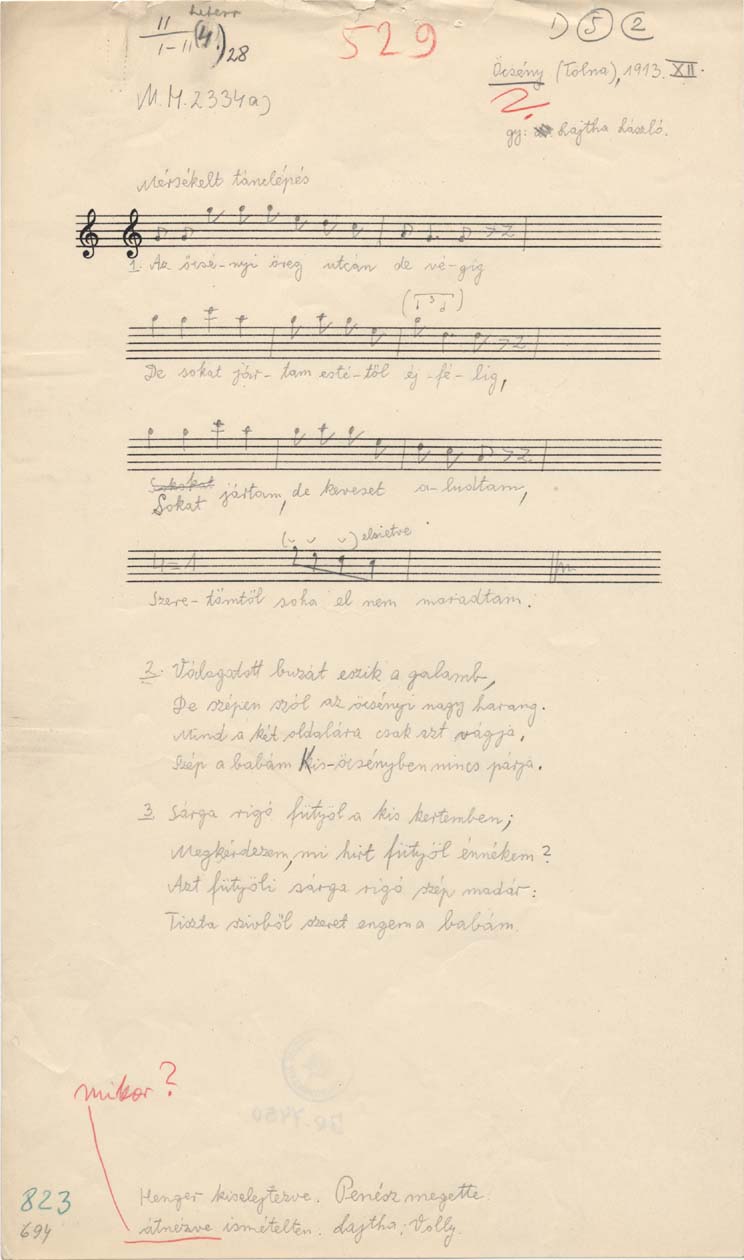 II
I-II (4.) 28
529
1) 5 2
M.H.2334a)
Öcsény (Tolna), 1913. XII.
2.
gy: Lajtha László.
Mérsékelt tánclépés
1. Az öcsé-nyi öreg utcán de vé-gig
(3)
De sokat jár-tam esté-től éj-fé-lig,
Sokat jártam, de keveset a-ludtam,
4=1 elsietve
Szere-tőmtől soha el nem maradtam.
2. Válogatott buzát eszik a galamb,
De szépen szól az öcsényi nagy harang.
Mind a két oldalára csak azt vágja,
Szép a babám Kis-öcsényben nincs párja.
3. Sárga rigó fütyöl a kis kertemben;
Megkérdezem, mi hirt fütyöl énnékem?
Azt fütyöli sárga rigó szép madár:
Tiszta szivből szeret engem a babám.
mikor?
Henger kiselejtezve. Penész megette.
átnézve ismételten. Lajtha; Volly.
823
694